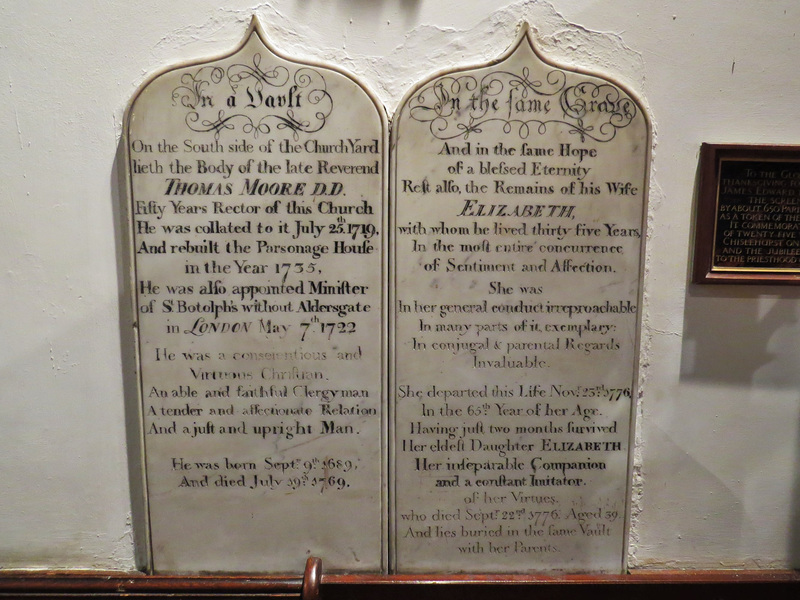 In a Vault
On the South side of the Church Yard
lieth the Body of the late Reverend
THOMAS MOORE D.D.
Fifty Years Rector of this Church
He was collated to it July 25th. 1719,
And rebuilt the Parsonage House
in the Year 1735,
He was also appointed Minister
of St. Botolph's without Aldersgate
in LONDON May 7th. 1722
He was a conscientious and
Virtuous Christian.
An able and faithful Clergyman
A tender and affectionate Relation
And a just and upright Man.
He was born Septr. 9th. 1689,
And died July 1769.
In the same Grave
And in the same Hope
of a blessed Eternity
Rest also, the Remains of his Wife
ELIZABETH,
with whom he lived thirty five Years,
In the most entire concurrence
of Sentiment and Affection.
She was
In her general conduct irreproachable
In many parts of it, exemplary:
In conjugal & parental Regards
Invaluable.
She departed this Life Novr. 23rd. 1776,
In the 65th. Year of her Age.
Having just two months survived
Her eldest Daughter ELIZABETH
Her inseparable Companion
and a constant Imitator.
of her Virtues.
who died Septr. 22nd. 1776. Aged 39.
And lies buried in the same Vault
with her Parents.
TO THE
THANKSGIVING
JAMES EDWARD
THE SCREEN
BY ABOUT 650
AS A TOKEN OF THE
IT COMMEMORA
OF TWENTY-FIVE
CHISLEHURST
AND THE JUBILEE
TO THE PRIESTHOOD